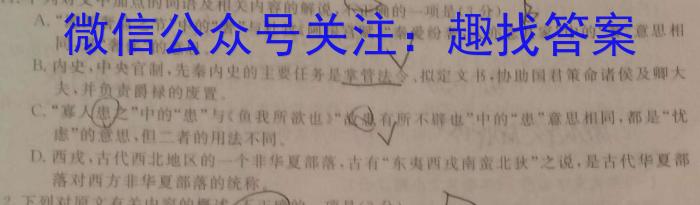 下列对文中加点的词语及相关内容的解说，不正确的一项是(3分)
微信公众号关注：趣找答案
A. 意思相
同
B. 内史，中央官制，先秦内史的主要任务是掌管法令、拟定文书，协助国君策命诸侯及卿大
夫，并负责爵禄的废置。
C. “寡人患之”中的“患”与《鱼我所欲也》“故患有所不辟也”中的“患”意思相同，都是“忧
虑”的意思，但二者的用法不同。
D. 西戎，古代西北地区的一个非华夏部落，古有“东夷西戎南蛮北狄”之说，是古代华夏部
落对西方非华夏部落的统称。
下列对原文有关内容的概述，不正确的一项是(3分)